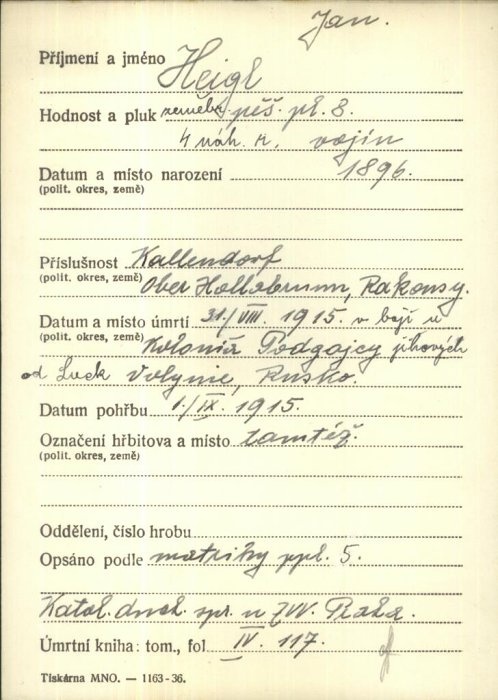 Jan.
Příjmení a jméno Heigl
Hodnost a pluk zeměbr. pěš. pl. 8.
4 náh. r. vojín
Datum a místo narození 1896.
(polit. okres, země)
Příslušnost Kallendorf
(polit. okres, země) Ober Hollabrunn, Rakousy.
Datum a místo úmrtí 31./VIII. 1915. v boji u
(polit. okres, země) Kolonia Podgajcy jihových.
od Luck Volynie, Rusko.
Datum pohřbu 1./IX. 1915.
Označení hřbitova a místo tamtéž.
(polit. okres, země)
Oddělení, číslo hrobu
Opsáno podle matriky ppl. 5.
Katol. duch. spr. u ZVV. Praha.
Úmrtní kniha: tom., fol IV. 117.
Tiskárna MNO. — 1163-36.